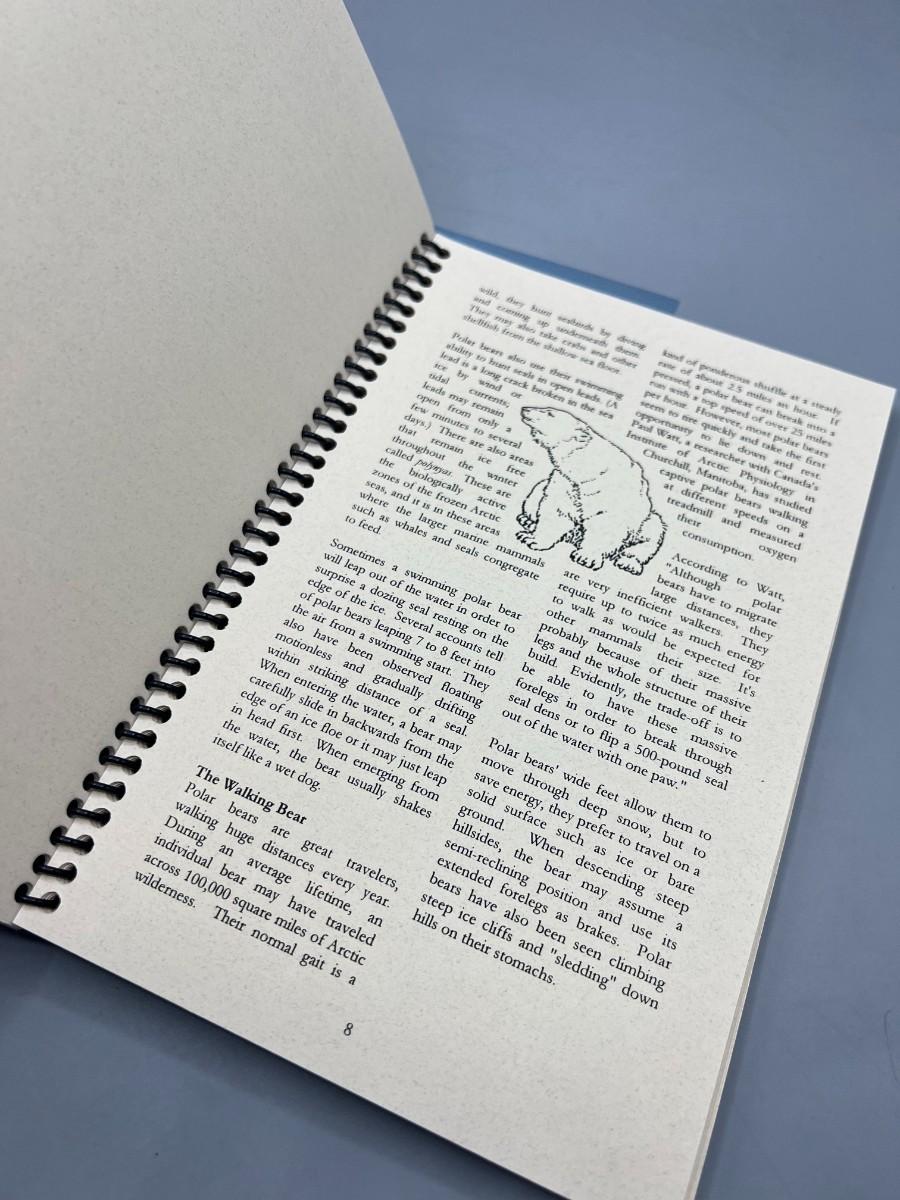 wild, they hunt seabirds by diving
and coming up underneath them.
They may also take crabs and other
shellfish from the shallow sea floor.
Polar bears also use their swimming
ability to hunt seals in open leads. (A
lead is a long crack broken in the sea
ice by wind or
tidal currents;
leads may remain
open from only a
few minutes to several
days.) There are also areas
that remain ice free
throughout the winter
called polynyas. These are
the biologically active
zones of the frozen Arctic
seas, and it is in these areas
where the larger marine mammals
such as whales and seals congregate
to feed.
Sometimes a swimming polar bear
will leap out of the water in order to
surprise a dozing seal resting on the
edge of the ice. Several accounts tell
of polar bears leaping 7 to 8 feet into
the air from a swimming start. They
also have been observed floating
motionless and gradually drifting
within striking distance of a seal.
When entering the water, a bear may
carefully slide in backwards from the
edge of an ice floe or it may just leap
in head first. When emerging from
the water, the bear usually shakes
itself like a wet dog.
The Walking Bear
Polar bears are great travelers,
walking huge distances every year.
During an average lifetime, an
individual bear may have traveled
across 100,000 square miles of Arctic
wilderness. Their normal gait is a
kind of ponderous shuffle at a steady
rate of about 2.5 miles an hour. If
pressed, a polar bear can break into a
run with a top speed of over 25 miles
per hour. However, most polar bears
seem to tire quickly and take the first
opportunity to lie down and rest.
Paul Watt, a researcher with Canada's
Institute of Arctic Physiology in
Churchill, Manitoba, has studied
captive polar bears walking
at different speeds on a
treadmill and measured
their oxygen
consumption.
According to Watt,
"Although polar
bears have to migrate
large distances, they
are very inefficient walkers. They
require up to twice as much energy
to walk as would be expected for
other mammals their size. It's
probably because of their massive
legs and the whole structure of their
build. Evidently, the trade-off is to
be able to have these massive
forelegs in order to break through
seal dens or to flip a 500-pound seal
out of the water with one paw."
Polar bears' wide feet allow them to
move through deep snow, but to
save energy, they prefer to travel on a
solid surface such as ice or bare
ground. When descending steep
hillsides, the bear may assume a
semi-reclining position and use its
extended forelegs as brakes. Polar
bears have also been seen climbing
steep ice cliffs and "sledding" down
hills on their stomachs.
8